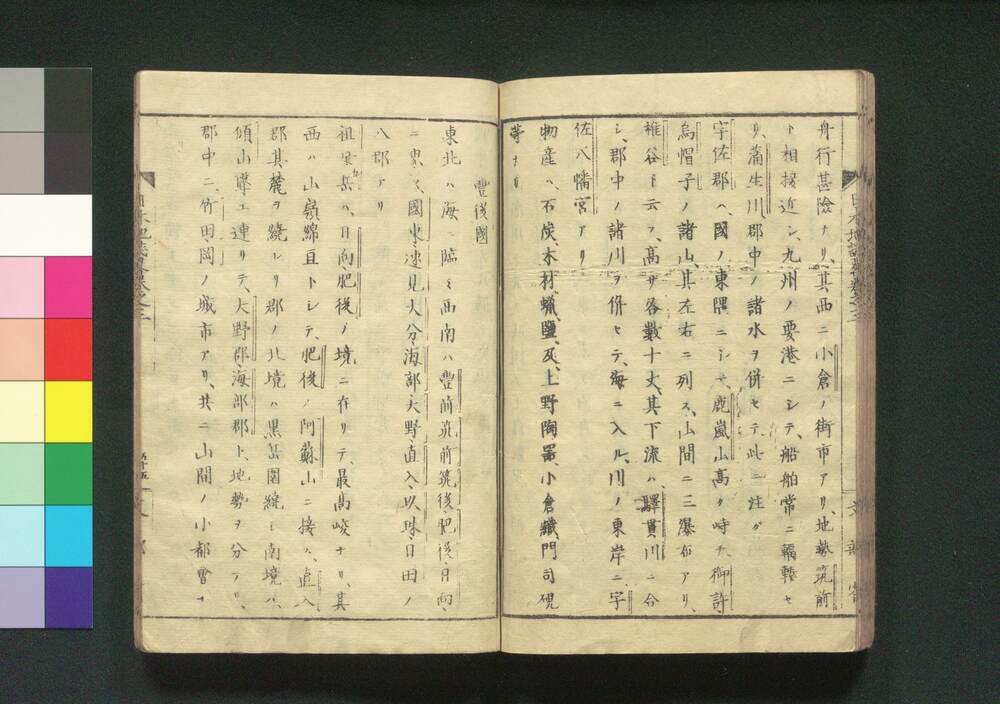 舟行甚險ナリ、其西ニ小倉ノ街市アリ、地勢筑前
ト相接近シ、九州ノ要港ニシテ、船舶常ニ輻輳セ
リ、蒲生川、郡中ノ諸水ヲ併セテ、此ニ注グ
宇佐郡ハ、國ノ東隅ニシテ、鹿嵐山高ク峙チ、御許
烏帽子ノ諸山、其左右ニ列ス、山間ニ三瀑布アリ、
椎谷ト云フ、高サ各數十丈、其下流ハ、驛貫川ニ合
シ、郡中ノ諸川ヲ併セテ、海ニ入ル、川ノ東岸ニ、宇
佐八幡宮アリ
物産ハ、石炭、木材、蝋、鹽、及、上野陶器、小倉織、門司硯
等ナリ
豐後國
東北ハ海ニ臨ミ西南ハ豐前筑前筑後肥後日向、
ニ界ス、國東速見大分海部大野直入玖珠日田ノ
八郡アリ
祖母岳ハ、日向肥後ノ境ニ在リテ、最高峻ナリ、其
西ハ山嶺綿亘トシテ、肥後ノ阿蘇山ニ接ス、直入
郡其麓ヲ繞レリ郡ノ北境ハ黒岳圍繞シ南境ハ、
傾山聳エ連リテ、大野郡、海部郡ト、地勢ヲ分テリ、
郡中ニ、竹田、岡ノ城市アリ、共ニ山間ノ小都會ナ
日本地誌畧卷之三
五十五